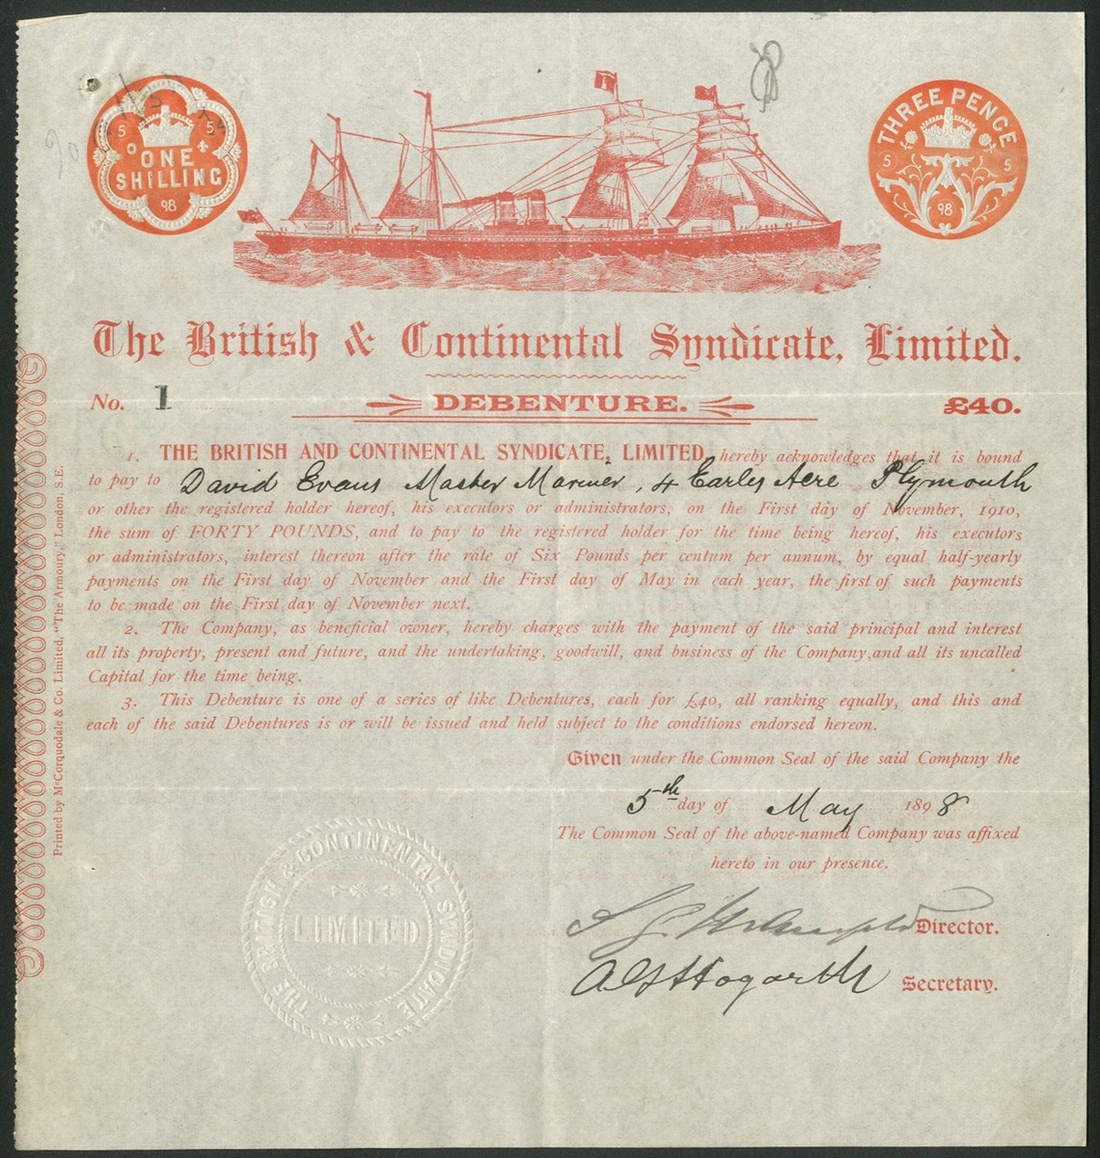 5 5
ONE
SHILLING
98
THREE PENCE
5 5
98
The British & Continental Syndicate, Limited.
No. 1 DEBENTURE. £40.
1. THE BRITISH AND CONTINENTAL SYNDICATE, LIMITED, hereby acknowledges that it is bound
to pay to David Evans Master Mariner, 4 Earles Acre Plymouth
or other the registered holder hereof, his executors or administrators, on the First day of November, 1910,
the sum of FORTY POUNDS, and to pay to the registered holder for the time being hereof, his executors
or administrators, interest thereon after the rate of Six Pounds per centum per annum, by equal half-yearly
payments on the First day of November and the First day of May in each year, the first of such payments
to be made on the First day of November next.
2. The Company, as beneficial owner, hereby charges with the payment of the said principal and interest
all its property, present and future, and the undertaking, goodwill, and business of the Company, and all its uncalled
Capital for the time being.
3. This Debenture is one of a series of like Debentures, each for £40, all ranking equally, and this and
each of the said Debentures is or will be issued and held subject to the conditions endorsed hereon.
Given under the Common Seal of the said Company the
5th day of May 1898
The Common Seal of the above-named Company was affixed
hereto in our presence.
Director.
Hogarth Secretary.
THE BRITISH & CONTINENTAL SYNDICATE
LIMITED
Printed by McCorquodale & Co. Limited, "The Armoury," London, S.E.